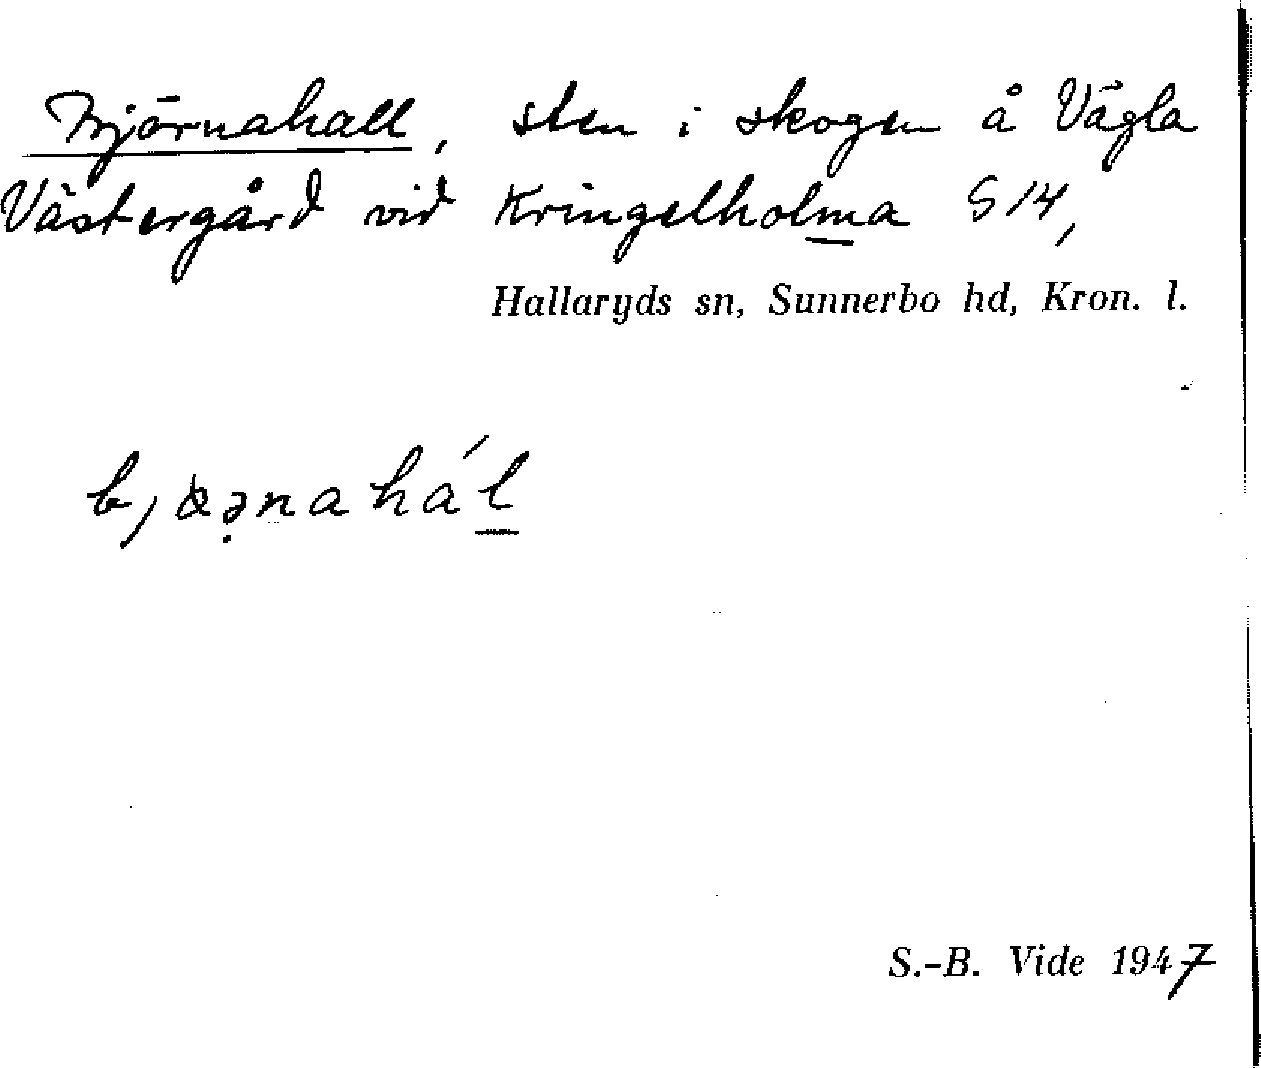 Björnahall, sten i skogen å Vägla
Västergård vid Kringelholma S 14,
Hallaryds sn, Sunnerbo hd, Kron. l.
S.-B. Vide 1947